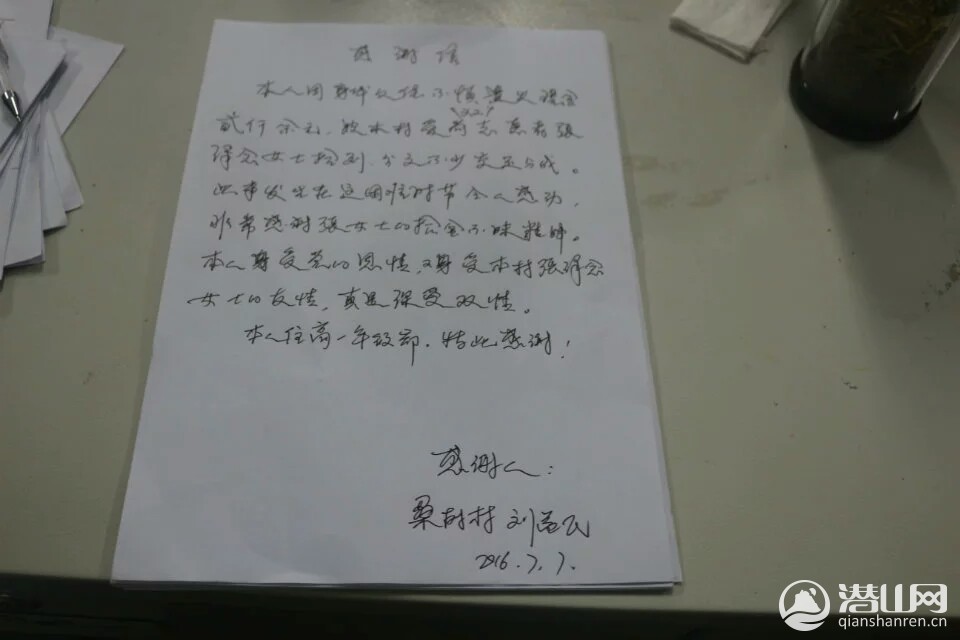 感谢信
本人因身 不慎遗失现金
(7.2)
贰仟余元,被本村受荷志愿者張
泽会女士捡到,分文不少交还与我。
此事发生在这困难时节令人感动,
非常感谢張女士的拾金不昧精神。
本人身受党的恩情,又身受本村張泽会
女士的友情,真是深受双情。
本人住高一年级部,特此感谢!
感谢人:
桑树村 刘益民
2016.7.7.
潜山网
qianshanren.cn